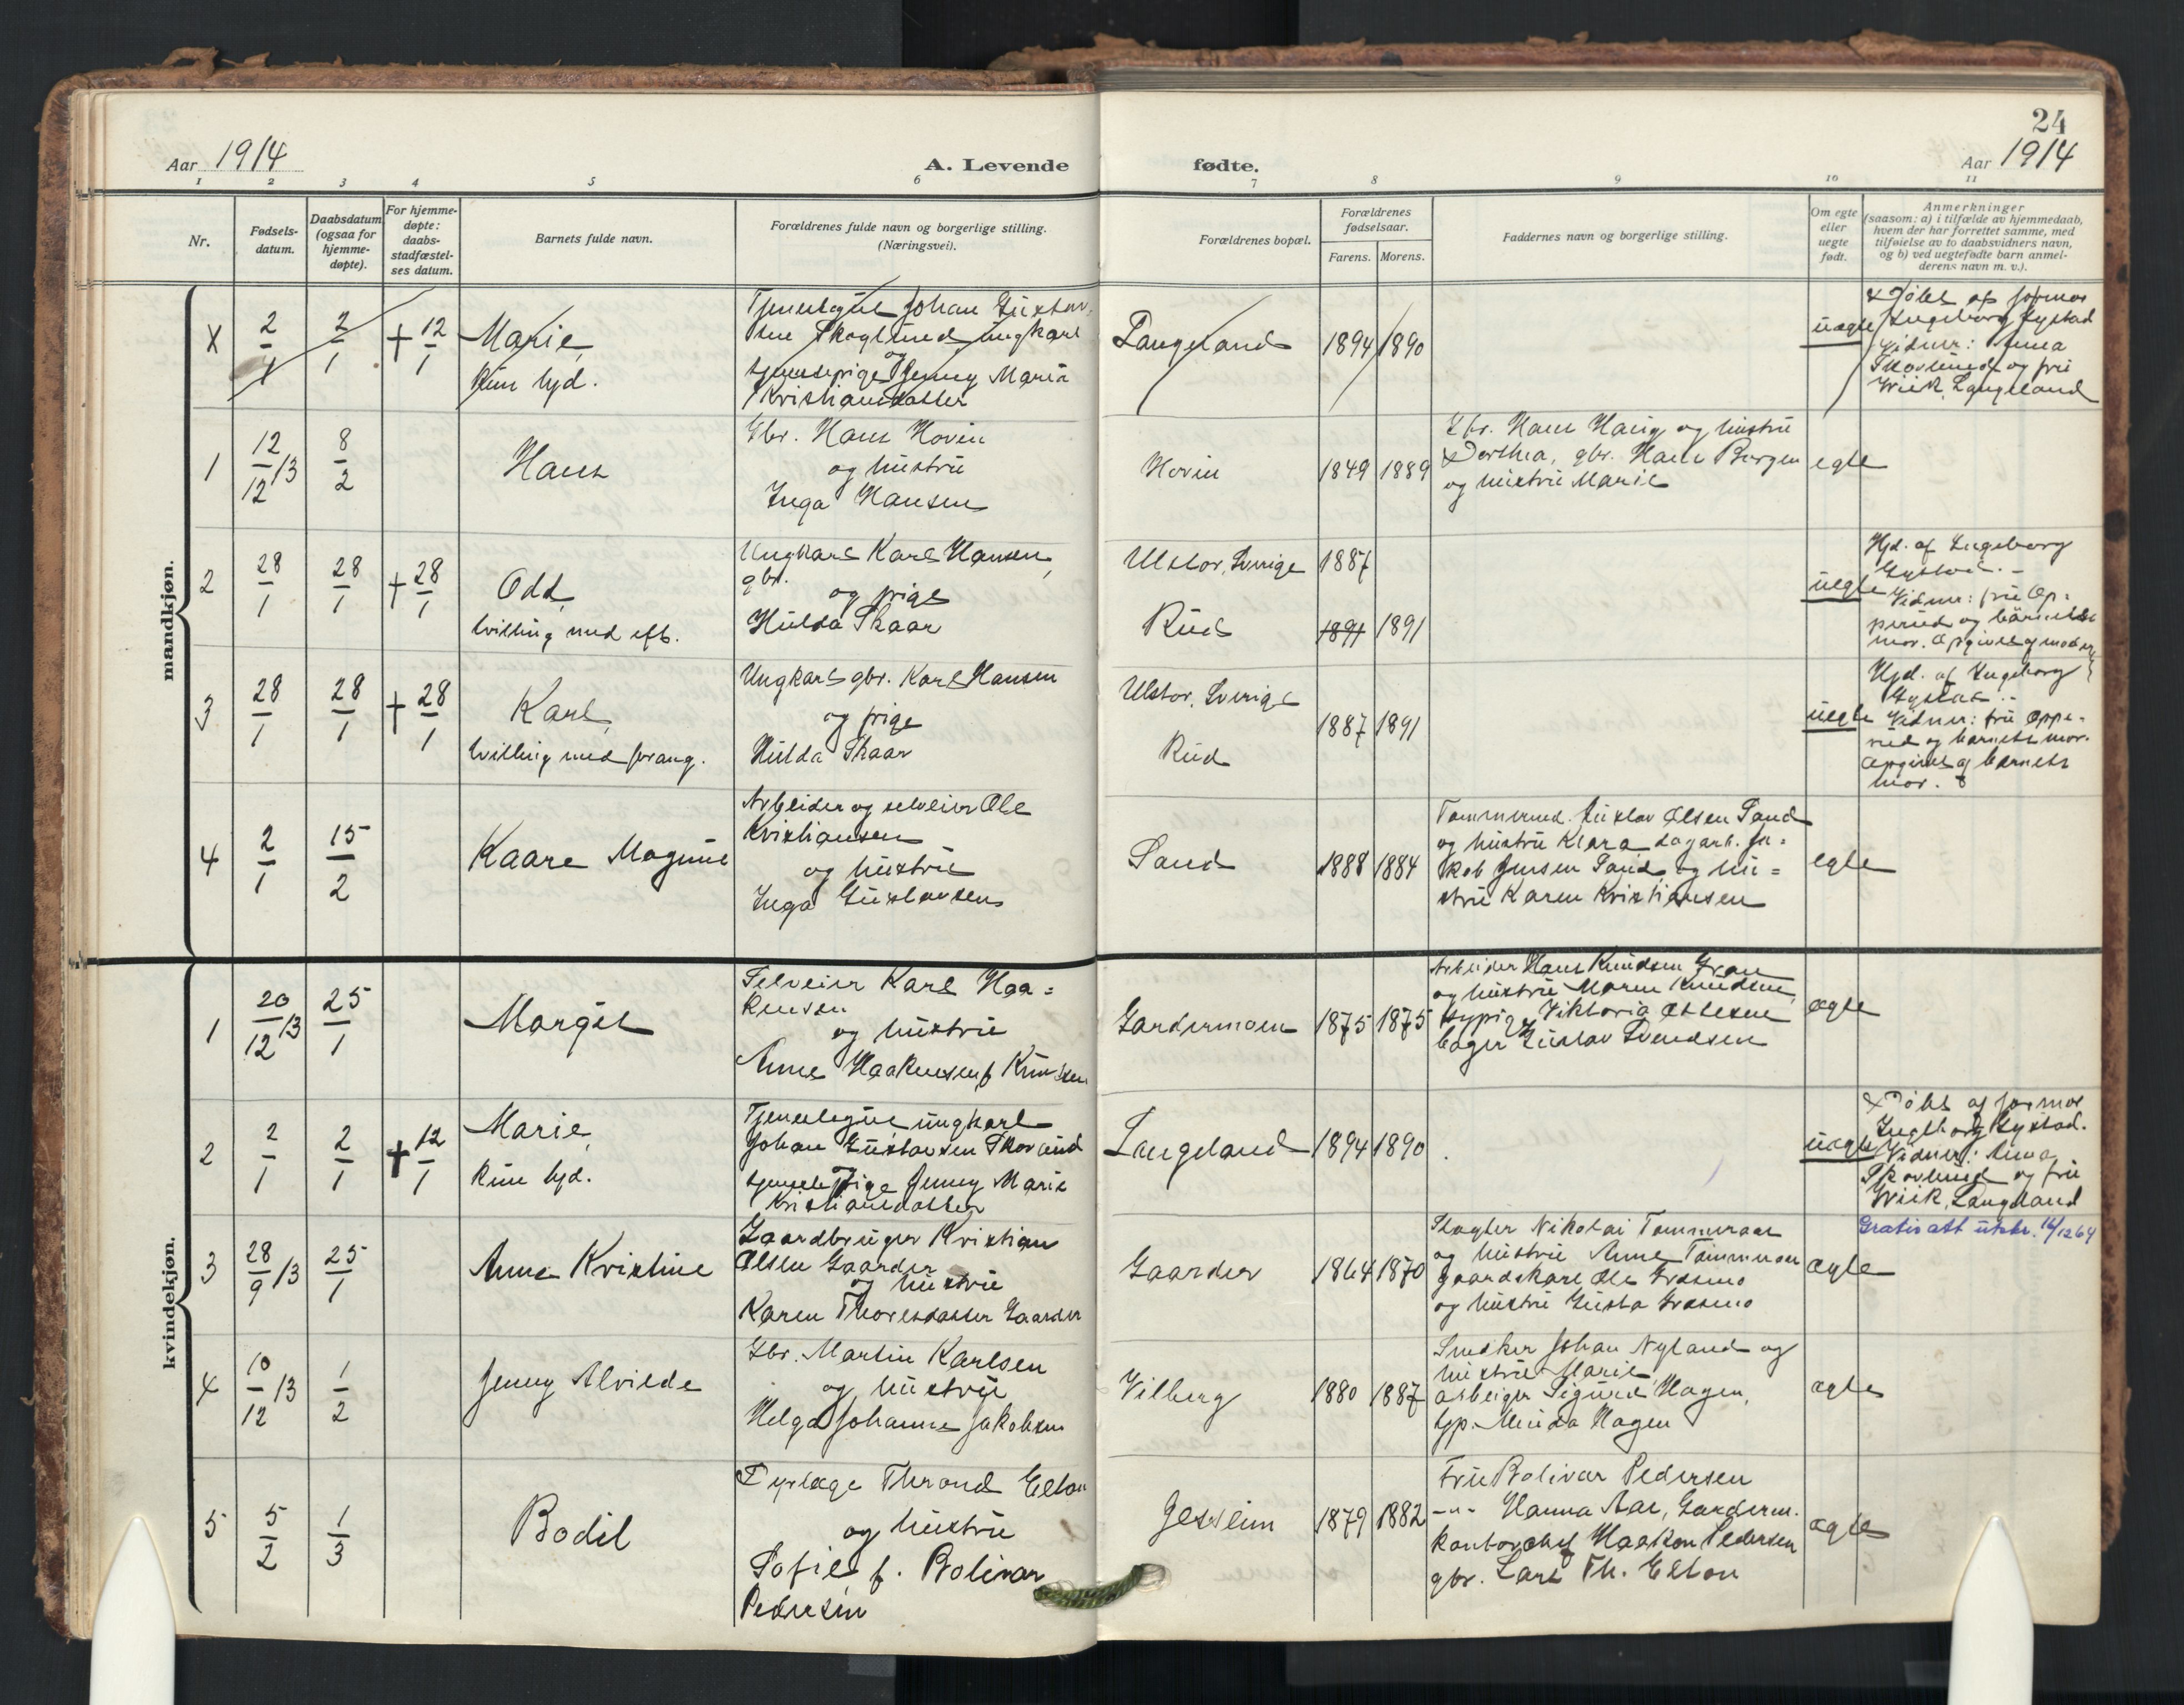 24
Aar 1914
A. Levende
fødte.
Aar 1914
1 2 3 4 5 6 7 8 9 10 11
Nr.
Fødsels-
datum.
Daabsdatum
(ogsaa for
hjemme-
døpte).
For hjemme-
døpte:
daabs-
stadfæstel-
ses datum.
Barnets fulde navn.
Forældrenes fulde navn og borgerlige stilling.
(Næringsvei).
Forældrenes bopæl.
Forældrenes
fødselsaar.
Farens. Morens.
Faddernes navn og borgerlige stilling.
Om egte
eller
uegte
født.
Anmerkninger
(saasom: a) i tilfælde av hjemmedaab,
hvem der har forrettet samme, med
tilføielse av to daabsvidners navn,
og b) ved uegtefødte barn anmel-
derens navn m. v.).
mandkjøn.
X
2/1
2/1
+ 12/1
Marie,
kun hjd.
Johan
ungkarl
og
tjenestepige Jenny Marie
Kristiansdatter
Langeland
1894 1890
uægte
Døbt af jormor
Ingeborg Lystad
Vidner: Anna
og fru
Wiik, Langeland
1
12/12 13
8/2
Hans
Gbr. Hans Hovin
og hustru
Inga Hansen
Hovin
1849 1889
Gbr. Hans Haug og hustru
Dorthea, gbr. Hans Borgen
og hustru Marie
egte
2
28/1
28/1
+ 28/1
Odd,
tvilling med eft.
Ungkarl Karl Hansen,
gbr.
og pige
Hulda Skaar
Sverige
Rud
1887
1891 1891
uegte
Hjd. af Ingeborg
Lystad. –
Vidner: fru Op-
perud og barnets
mor. Opgivet af moderen
3
28/1
28/1
+ 28/1
Karl,
tvilling med forang.
Ungkarl gbr. Karl Hansen
og pige
Hulda Skaar
Sverige
Rud
1887 1891
uegte
Hjd. af Ingeborg
Lystad. –
Vidner: fru Oppe-
rud og barnets mor.
Opgivet af barnets
mor.
4
2/1
15/2
Kaare Magnus
Arbeider og selveier Ole
Kristiansen
og hustru
Inga Gustavsen
Sand
1888 1884
Tømmermd. Gustav Olsen Sand
og hustru Klara dagarb. Ja-
kob Jensen Sand og hu-
stru Karen Kristiansen
egte
kvindekjøn.
1
20/12 13
25/1
Margit
Selveier Karl Haa-
kensen
og hustru
Anne Haakensen f. Knudsen
Gardermoen
1875 1875
Arbeider Hans Knudsen
og hustru Maren Knudsen,
Viktoria
Gustav Svendsen
ægte
2
2/1
2/1
+ 12/1
Marie,
kun hjd.
ungkarl
Johan Gustavsen
tjenestepige Jenny Marie
Kristiansdatter
Langeland
1894 1890
uægte
Døbt af jormor
Ingeborg Lystad.
Vidner: Anna
og fru
Wiik, Langeland
3
28/9 13
25/1
Anne Kristine
Gaardbruger Kristian
Olsen Gaarder
og hustru
Karen Thoresdatter Gaarder
Gaarder
1864 1870
Slagter Nikolai
og hustru Anne
gaardskarl Ole
og hustru Gusta
ægte
Gratis att utskr. 16/12 64
4
10/12 13
1/2
Jenny Alvilde
Gbr. Martin Karlsen
og hustru
Helga Johanne Jakobsen
Vilberg
1880 1887
Snedker Johan Nyland og
hustru Marie,
arbeider Sigurd Hagen,
Hagen
ægte
5
5/2
1/3
Bodil
Dyrlæge Thrond Elton
og hustru
Sofie, f. Bolivar
Pedersen
Jessheim
1879 1882
Fru Bolivar Pedersen
-"- Hanna Aas, Garderm.
kontorchef Haakon Pedersen
gbr. Lars Th. Elton
ægte